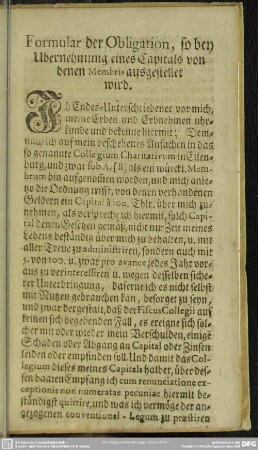 Formular der Obligation, so bey
Ubernehmung eines Capitals von
denen Membris ausgestellet
wird.
Ich Endes-Unterschriebener vor mich,
meine Erben und Erbnehmen uhr-
kunde und bekenne hiermit; Dem-
nach ich auf mein beschehenes Ansuchen in das
so genannte Collegium Charitativum in Eilen-
burg, und zwar sub N. [8] als ein würckl. Mem-
brum bin aufgenommen worden, und mich anie-
tzo die Ordnung trifft, von denen verhandenen
Geldern ein Capital à 100. Thlr. über mich zu-
nehmen, als verspreche ich hiermit, solch Capi-
tal denen Gesetzen gemäß, nicht nur Zeit meines
Lebens beständig über mich zu behalten, u. mit
aller Treue zu administriren, sondern auch mit
5. von 100. u. zwar pro avance jedes Jahr vor-
aus zu verinteressiren u. wegen desselben siche-
rer Unterbringung, daferne ich es nicht selbst
mit Nutzen gebrauchen kan, besorget zu seyn,
und zwar dergestalt, daß der Fiscus Collegii auf
keinen sich begebenden Fall, es ereigne sich sol-
cher mit oder wieder mein Verschulden, einigē
Schaden oder Abgang an Capital oder Zinsen
leiden oder empfinden soll. Und damit das Col-
legium dieses meines Capitals halber, über des-
sen baaren Empfang ich cum renunciatione ex-
ceptionis non numeratae pecuniae hiermit be-
ständigst quittire, und was ich vermöge der an-
gezogenen conventional-Legum zu praestiren